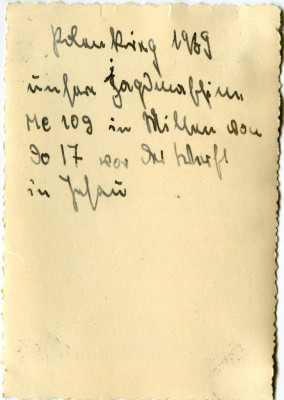 Polen Krieg 1939
unsere Jagdmaschine
Me 109 in Mitten von
Do 17 vor der Werft
in Jesau